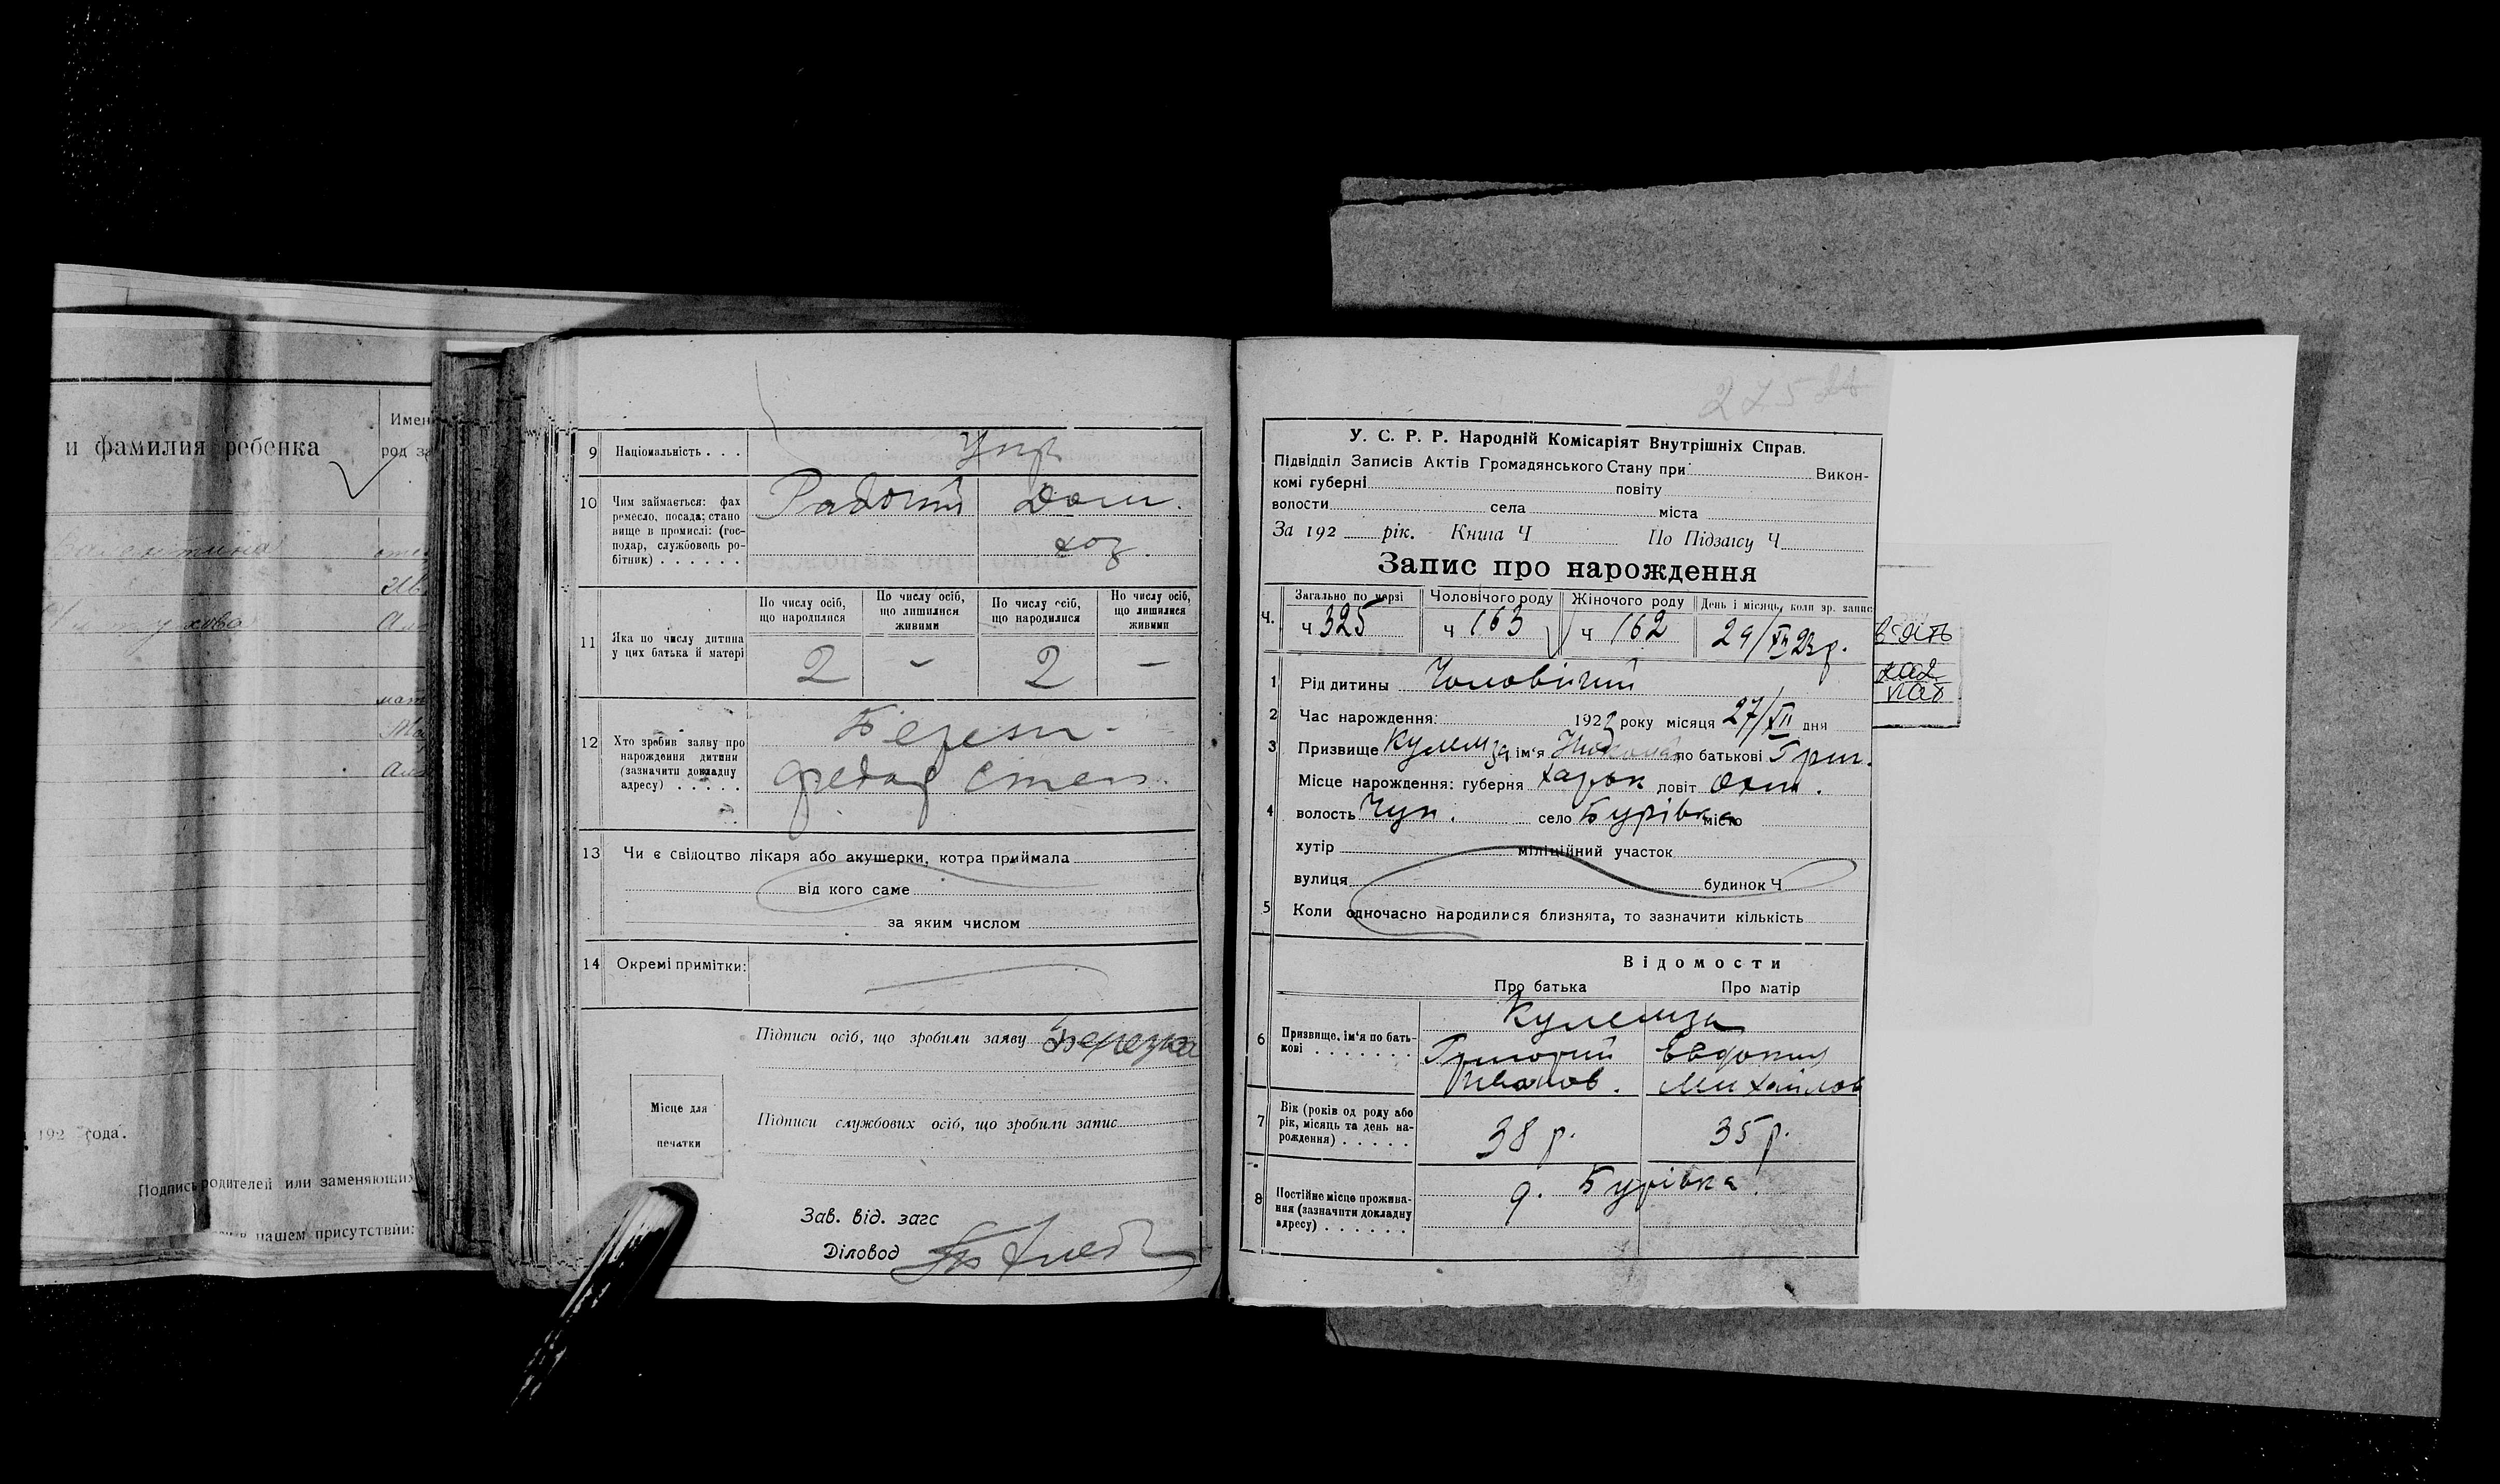 и фамилия ребенка
Имен
род за
192 года.
Подпись родителей или заменяющих
в нашем присутствии:
9 Національність . . . Укр
10 Чим займається: фах
ремесло, посада; стано
вище в промислі: (гос-
подар, службовець ро-
бітник) . . . . . .
Дом.
хоз.
11 Яка по числу дитина
у цих батька й матері
По числу осіб,
що народилися
По числу осіб,
що лишилися
живими
По числу осіб,
що народилися
По числу осіб,
що лишилися
живими
2 – 2 –
12 Хто зробив заяву про
народження дитини
(зазначити докладну
адресу) . . . . .
13 Чи є свідоцтво лікаря або акушерки, котра приймала
від кого саме
за яким числом
14 Окремі примітки:
Підписи осіб, що зробили заяву Березка
Місце для
печатки
Підписи службових осіб, що зробили запис
Зав. від. загс
Діловод
275
У. С. Р. Р. Народній Комісаріят Внутрішніх Справ.
Підвідділ Записів Актів Громадянського Стану при Викон-
комі губерні повіту
волости села міста
За 192 рік. Книга Ч По Підзагсу Ч
Запис про нарождення
Ч.
Загально по черзі
ч 325
Чоловічого роду
ч 163
Жіночого роду
ч 162
День і місяць, коли зр. запис
29/XII 23 р.
1 Рід дитини Чоловічий
2 Час нарождення: 1922 року місяця 27/XII дня
3 Призвище Кулемза ім'я Николай по батькові Григ.
4 Місце нарождення: губерня Харьк повіт Охт.
волость Чуп. село Бурівка місто
хутір міліційний участок
вулиця будинок Ч
5 Коли одночасно народилися близнята, то зазначити кількість
Відомости
Про батька Про матір
6 Призвище, ім'я по бать-
кові . . . . . . .
Кулемза
Григорий Евдокия
Иванов. Михайлов
7 Вік (років од роду або
рік, місяць та день на-
рождення) . . . . .
38 р. 35 р.
8 Постійне місце прожива-
ння (зазначити докладну
адресу) . . . . . .
Бурівка